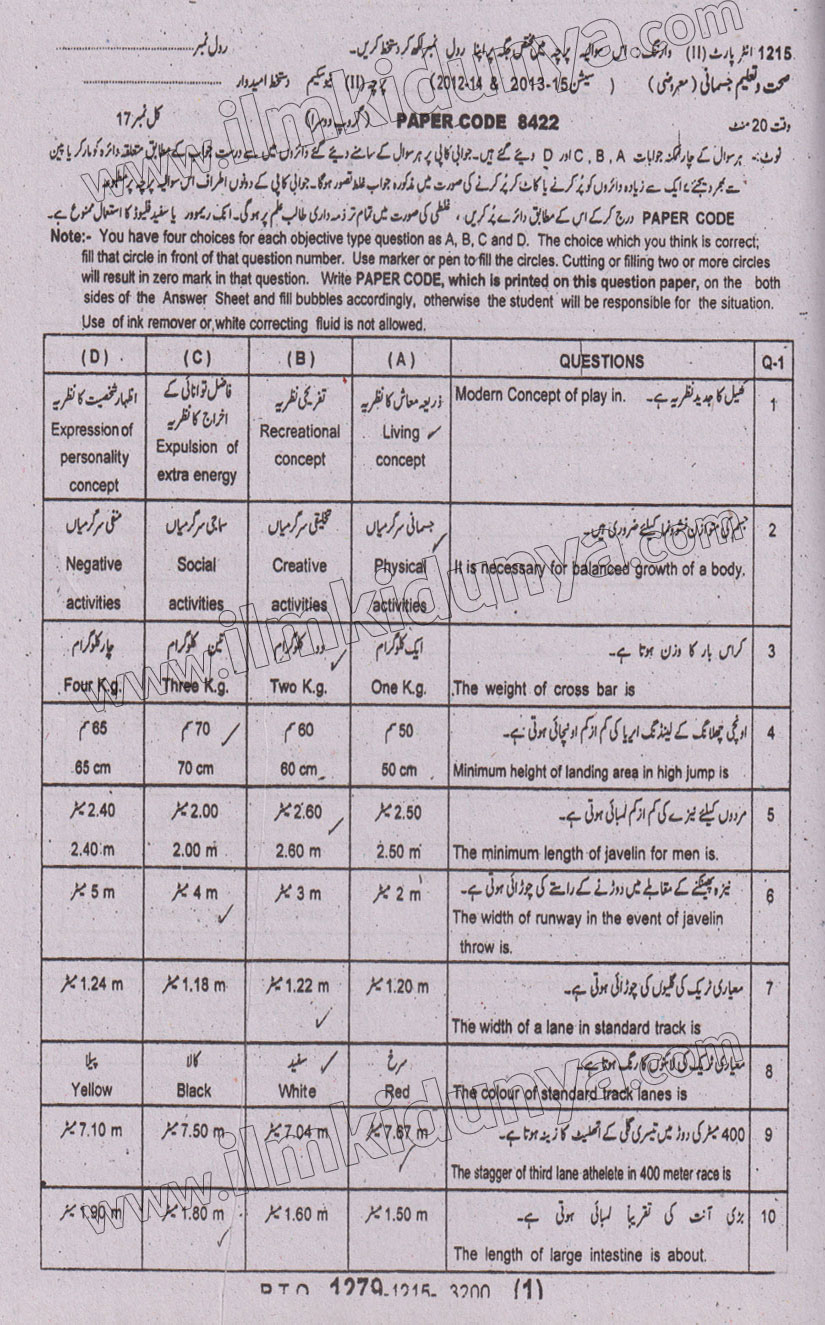 1215 انٹر پارٹ (II) وارننگ:۔ اس سوالیہ پرچہ میں مختص جگہ پر اپنا رول نمبر لکھ کر دستخط کریں۔ رول نمبر
صحت و تعلیم جسمانی (معروضی) (سیشن 2013-15 & 2012-14) پرچہ (II) نیو سکیم دستخط امیدوار
وقت 20 منٹ PAPER CODE 8422 (گروپ دوسرا) کل نمبر 17
نوٹ:۔ ہر سوال کے چار ممکنہ جوابات A, B, C اور D دیئے گئے ہیں۔ جوابی کاپی پر ہر سوال کے سامنے دیئے گئے دائروں میں سے درست جواب کے مطابق متعلقہ دائرہ کو مارکر یا پین
سے بھر دیجئے۔ ایک سے زیادہ دائروں کو پُر کرنے یا کاٹ کر پُر کرنے کی صورت میں مذکورہ جواب غلط تصور ہوگا۔ جوابی کاپی کے دونوں اطراف اس سوالیہ پرچہ پر مطبوعہ
PAPER CODE درج کر کے اس کے مطابق دائرے پُر کریں، غلطی کی صورت میں تمام تر ذمہ داری طالب علم پر ہوگی۔ انک ریموور یا سفید فلیوڈ کا استعمال ممنوع ہے۔
Note:- You have four choices for each objective type question as A, B, C and D. The choice which you think is correct;
fill that circle in front of that question number. Use marker or pen to fill the circles. Cutting or filling two or more circles
will result in zero mark in that question. Write PAPER CODE, which is printed on this question paper, on the both
sides of the Answer Sheet and fill bubbles accordingly, otherwise the student will be responsible for the situation.
Use of ink remover or white correcting fluid is not allowed.
(D) (C) (B) (A) QUESTIONS Q-1
اظہار شخصیت کا نظریہ فاضل توانائی کے اخراج کا نظریہ تفریحی نظریہ ذریعہ معاش کا نظریہ کھیل کا جدید نظریہ ہے۔ 1
Expression of personality concept Expulsion of extra energy Recreational concept Living concept Modern Concept of play in.
منفی سرگرمیاں سماجی سرگرمیاں تخلیقی سرگرمیاں جسمانی سرگرمیاں جسم کی متوازن نشوونما کیلئے ضروری ہیں۔ 2
Negative activities Social activities Creative activities Physical activities It is necessary for balanced growth of a body.
چار کلوگرام تین کلوگرام دو کلوگرام ایک کلوگرام کراس بار کا وزن ہوتا ہے۔ 3
Four K.g. Three K.g. Two K.g. One K.g. The weight of cross bar is
65 سم 70 سم 60 سم 50 سم اونچی چھلانگ کے لینڈنگ ایریا کی کم از کم اونچائی ہوتی ہے۔ 4
65 cm 70 cm 60 cm 50 cm Minimum height of landing area in high jump is
2.40 میٹر 2.00 میٹر 2.60 میٹر 2.50 میٹر مردوں کیلئے نیزے کی کم از کم لمبائی ہوتی ہے۔ 5
2.40 m 2.00 m 2.60 m 2.50 m The minimum length of javelin for men is.
5 m میٹر 4 m میٹر 3 m میٹر 2 m میٹر نیزہ پھینکنے کے مقابلے میں دوڑنے کے راستے کی چوڑائی ہوتی ہے۔ 6
The width of runway in the event of javelin
throw is.
1.24 m میٹر 1.18 m میٹر 1.22 m میٹر 1.20 m میٹر معیاری ٹریک کی گلیوں کی چوڑائی ہوتی ہے۔ 7
The width of a lane in standard track is
پیلا کالا سفید سرخ معیاری ٹریک کی لائنوں کا رنگ ہوتا ہے۔ 8
Yellow Black White Red The colour of standard track lanes is
7.10 m میٹر 7.50 m میٹر 7.04 m میٹر 7.67 m میٹر 400 میٹر کی دوڑ میں تیسری گلی کے اتھلیٹ کا زینہ ہوتا ہے۔ 9
The stagger of third lane athelete in 400 meter race is
1.90 m میٹر 1.80 m میٹر 1.60 m میٹر 1.50 m میٹر بڑی آنت کی تقریباً لمبائی ہوتی ہے۔ 10
The length of large intestine is about.
P.T.O 1279-1215-3200 (1)
www.ilmkidunya.com
www.ilmkidunya.com
www.ilmkidunya.com
www.ilmkidunya.com